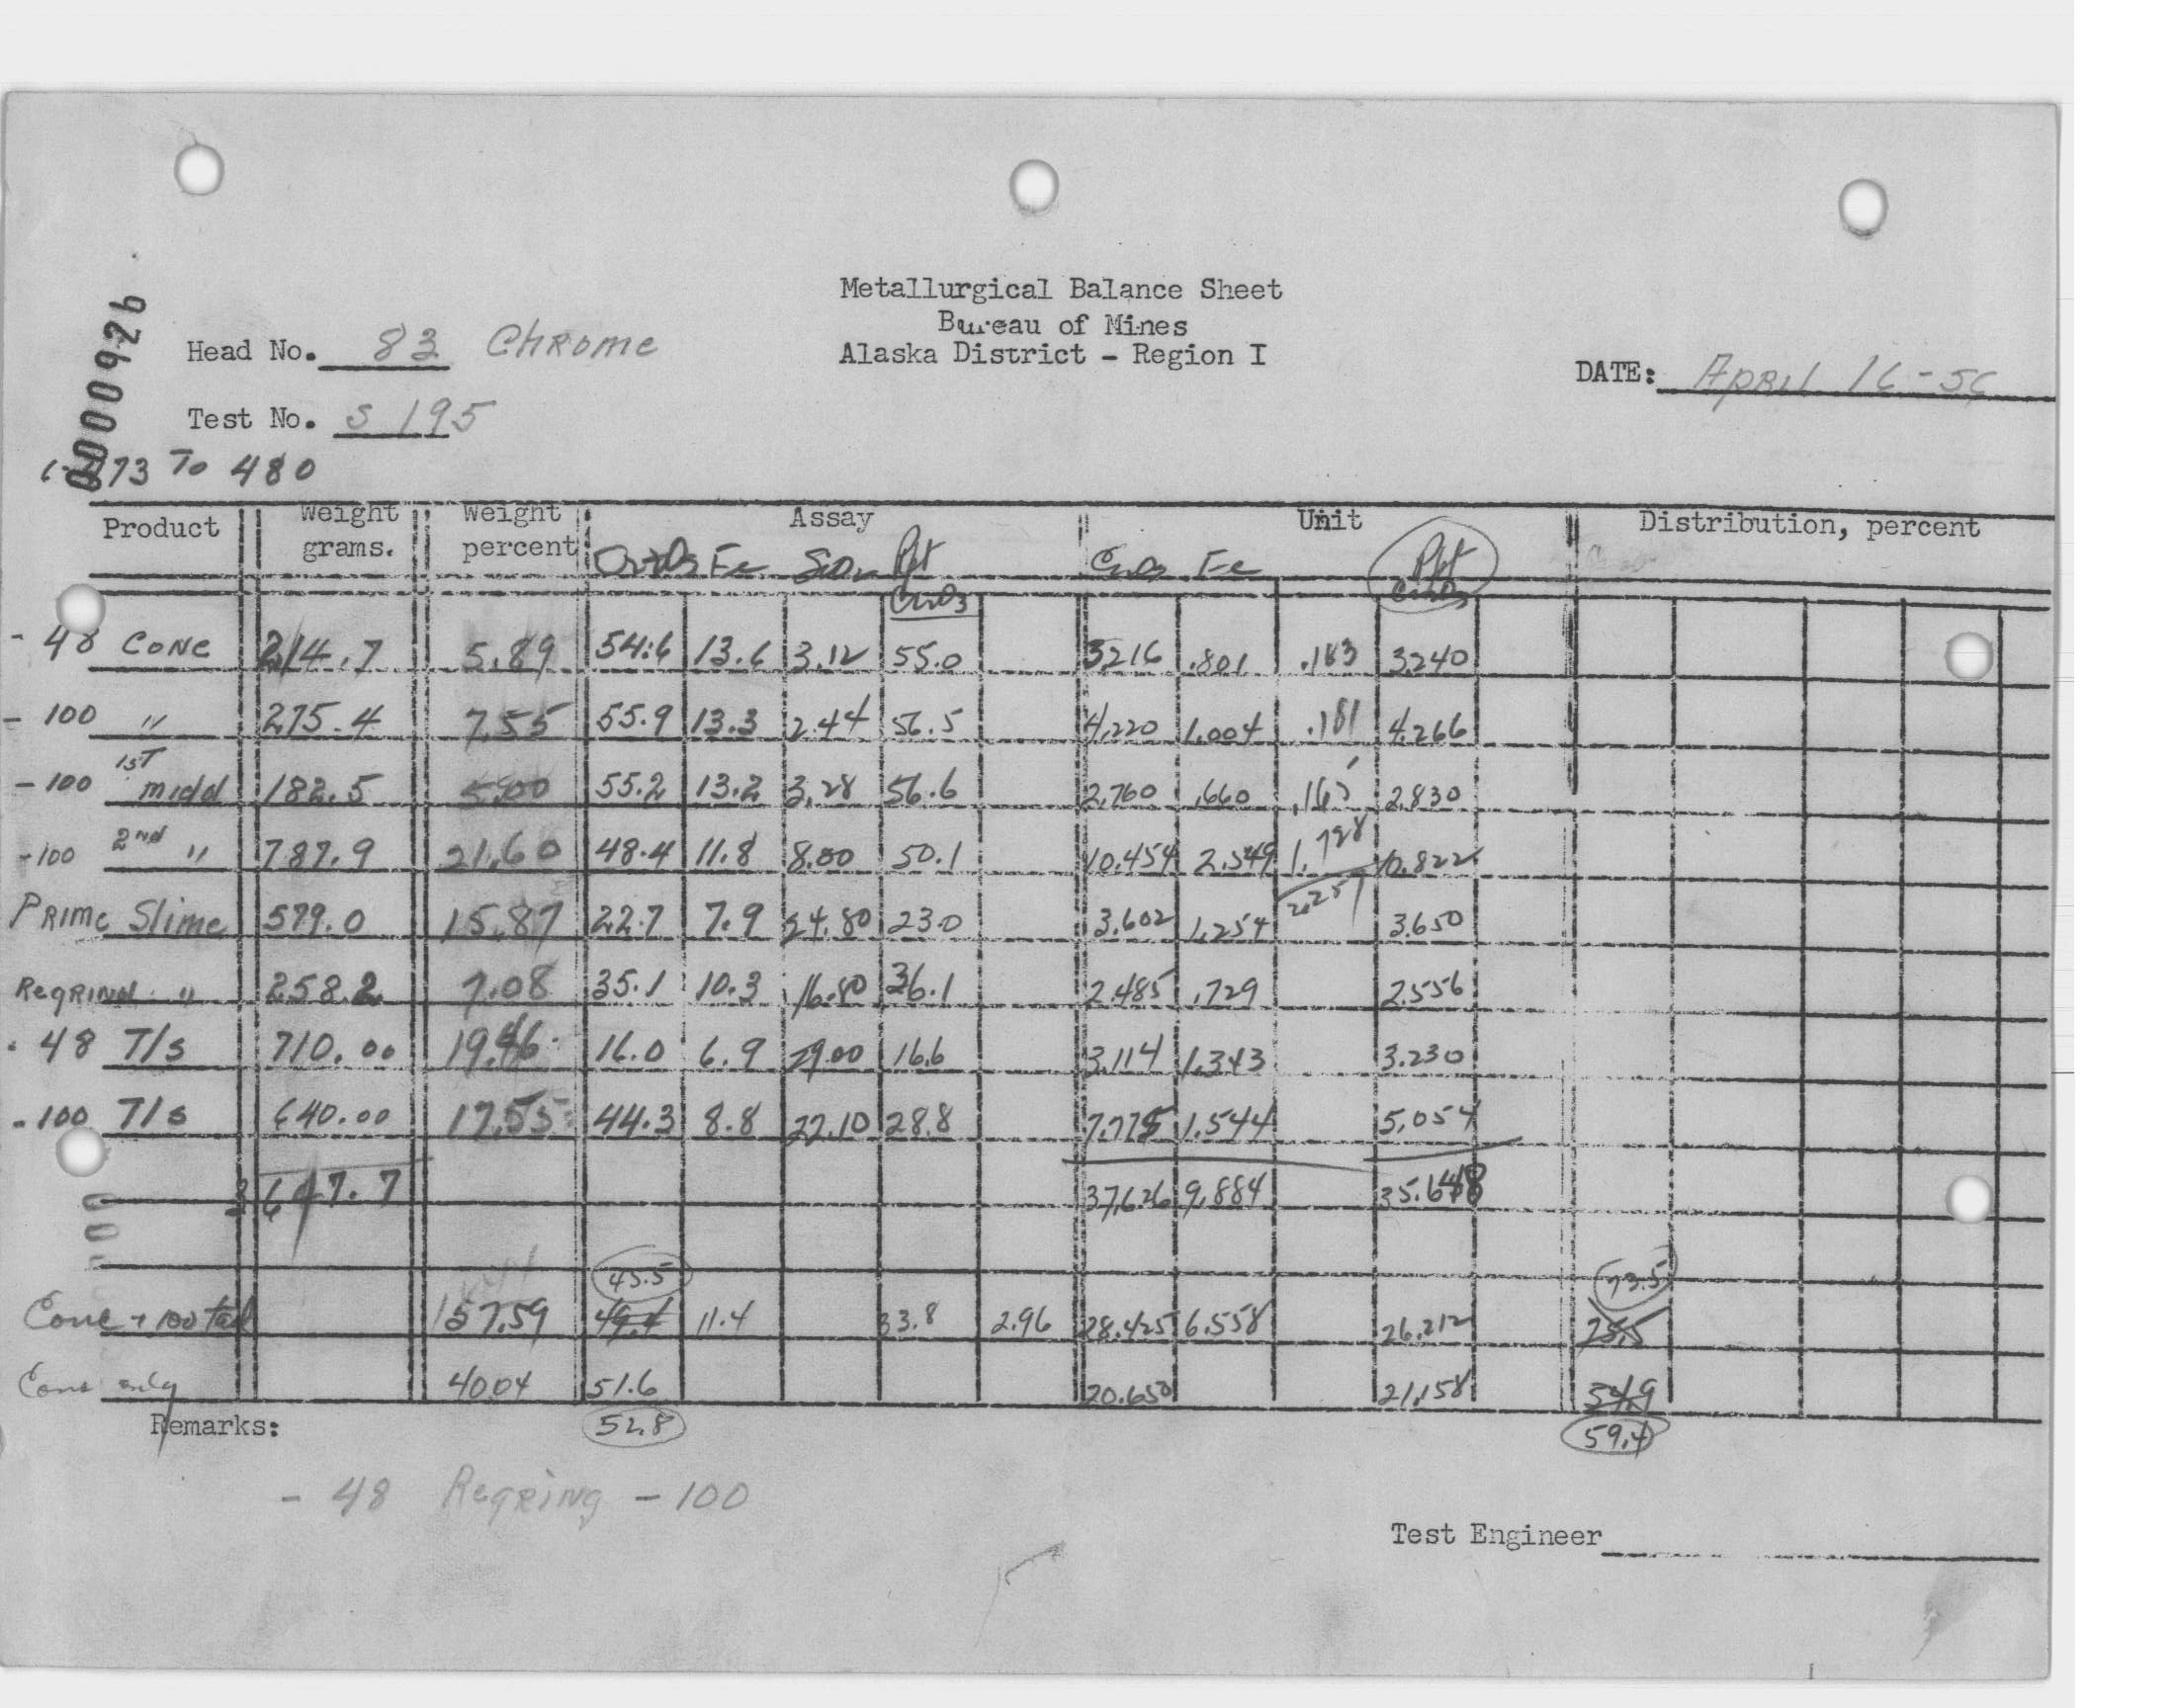 0000926
Metallurgical Balance Sheet
Bureau of Mines
Alaska District - Region I
Head No. 83 Chrome
DATE: April 16-56
Test No. S 195
473 To 480
Product Weight grams. Weight percent Assay Unit Distribution, percent
Cr2O3 Fe SiO2 Ppt Cr2O3 Cr2O3 Fe Ppt Cr2O3
- 48 Conc 214.7 5.89 54.6 13.6 3.12 55.0 3.216 .801 .183 3.240
- 100 " 275.4 7.55 55.9 13.3 2.44 56.5 4.220 1.004 .181 4.266
- 100 1st midd 182.5 5.00 55.2 13.2 3.28 56.6 2.760 .660 .165 2.830
-100 2nd " 787.9 21.60 48.4 11.8 8.00 50.1 10.454 2.549 1.728 10.822
2.257
Prime Slime 579.0 15.87 22.7 7.9 24.80 23.0 3.602 1.254 3.650
Regrind " 258.2 7.08 35.1 10.3 16.80 36.1 2.485 .729 2.556
- 48 T/s 710.00 19.46 16.0 6.9 29.00 16.6 3.114 1.343 3.230
- 100 T/s 640.00 17.55 44.3 8.8 22.10 28.8 7.775 1.544 5.054
3647.7 37.626 9.884 35.648
45.5 73.5
Conc + 100 tail 57.59 49.4 11.4 33.8 2.96 28.425 6.558 26.212 75.5
Conc only 40.04 51.6 20.650 21.158 54.9
52.8 59.4
Remarks:
- 48 Regring - 100
Test Engineer